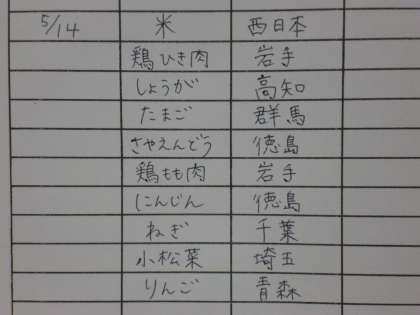 5/14 米 西日本
鶏ひき肉 岩手
しょうが 高知
たまご 群馬
さやえんどう 徳島
鶏もも肉 岩手
にんじん 徳島
ねぎ 千葉
小松菜 埼玉
りんご 青森